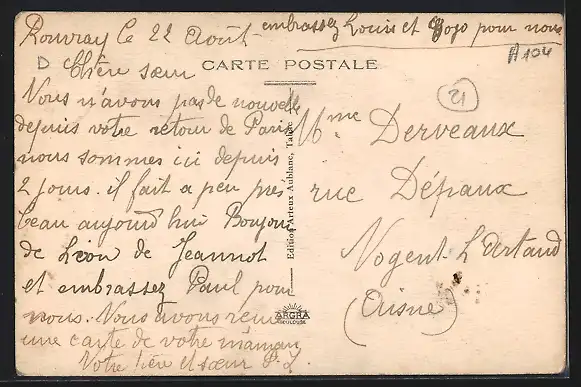 Rouvray le 22 Août
embrassez Louis et Jojo pour nous
A104
D
CARTE POSTALE
Chère sœur
21
Nous n'avons pas de nouvelle
depuis votre retour de Paris
nous sommes ici depuis
2 jours. il fait a peu près
beau aujourd'hui Bonjour
de Léon de Jeannot
et embrassez Paul pour
nous. Nous avons reçu
une carte de votre maman
Votre frère et sœur P. L.
Edition Arteux Aublanc, Tabac
ARGRA
TOULOUSE
Mme Derveaux
rue Dépaux
Nogent L'Artaud
(Aisne)